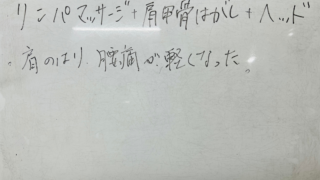 リンパマッサージ+肩甲骨はがし+ヘッド
・肩のはり、腰痛が軽くなった。